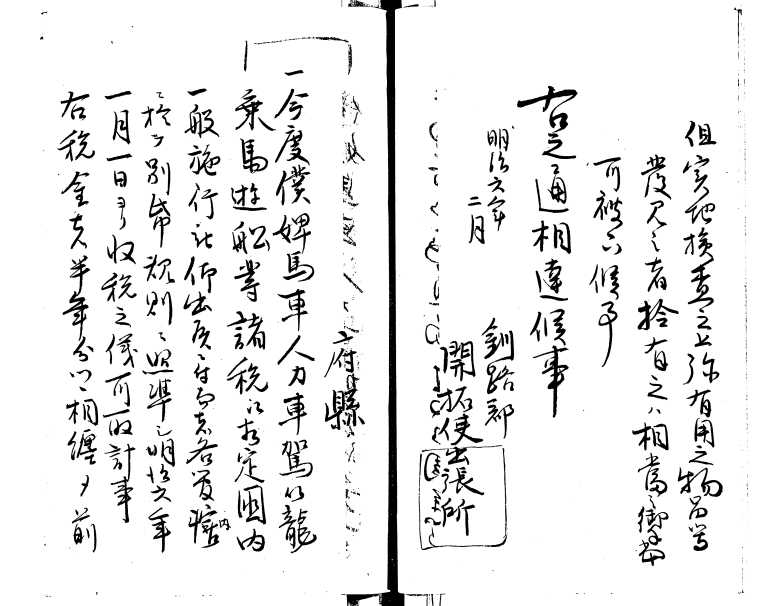 但実地検査之上弥有用之物品等
発見之者於有之ハ相当之御手当
可被下候事
右之通相達候事
明治六年
二月
釧路郡
開拓使出張所
府縣
一今度僕婢馬車人力車駕籠
乗馬遊船等諸税以布定國内
一般施行被仰出候ニ付而者各管轄内
ニ於テ別帋規則ニ照準シ明治六年
一月一日ヨリ収税之儀可取計事
右税金者半年分ツヽ相纏メ前